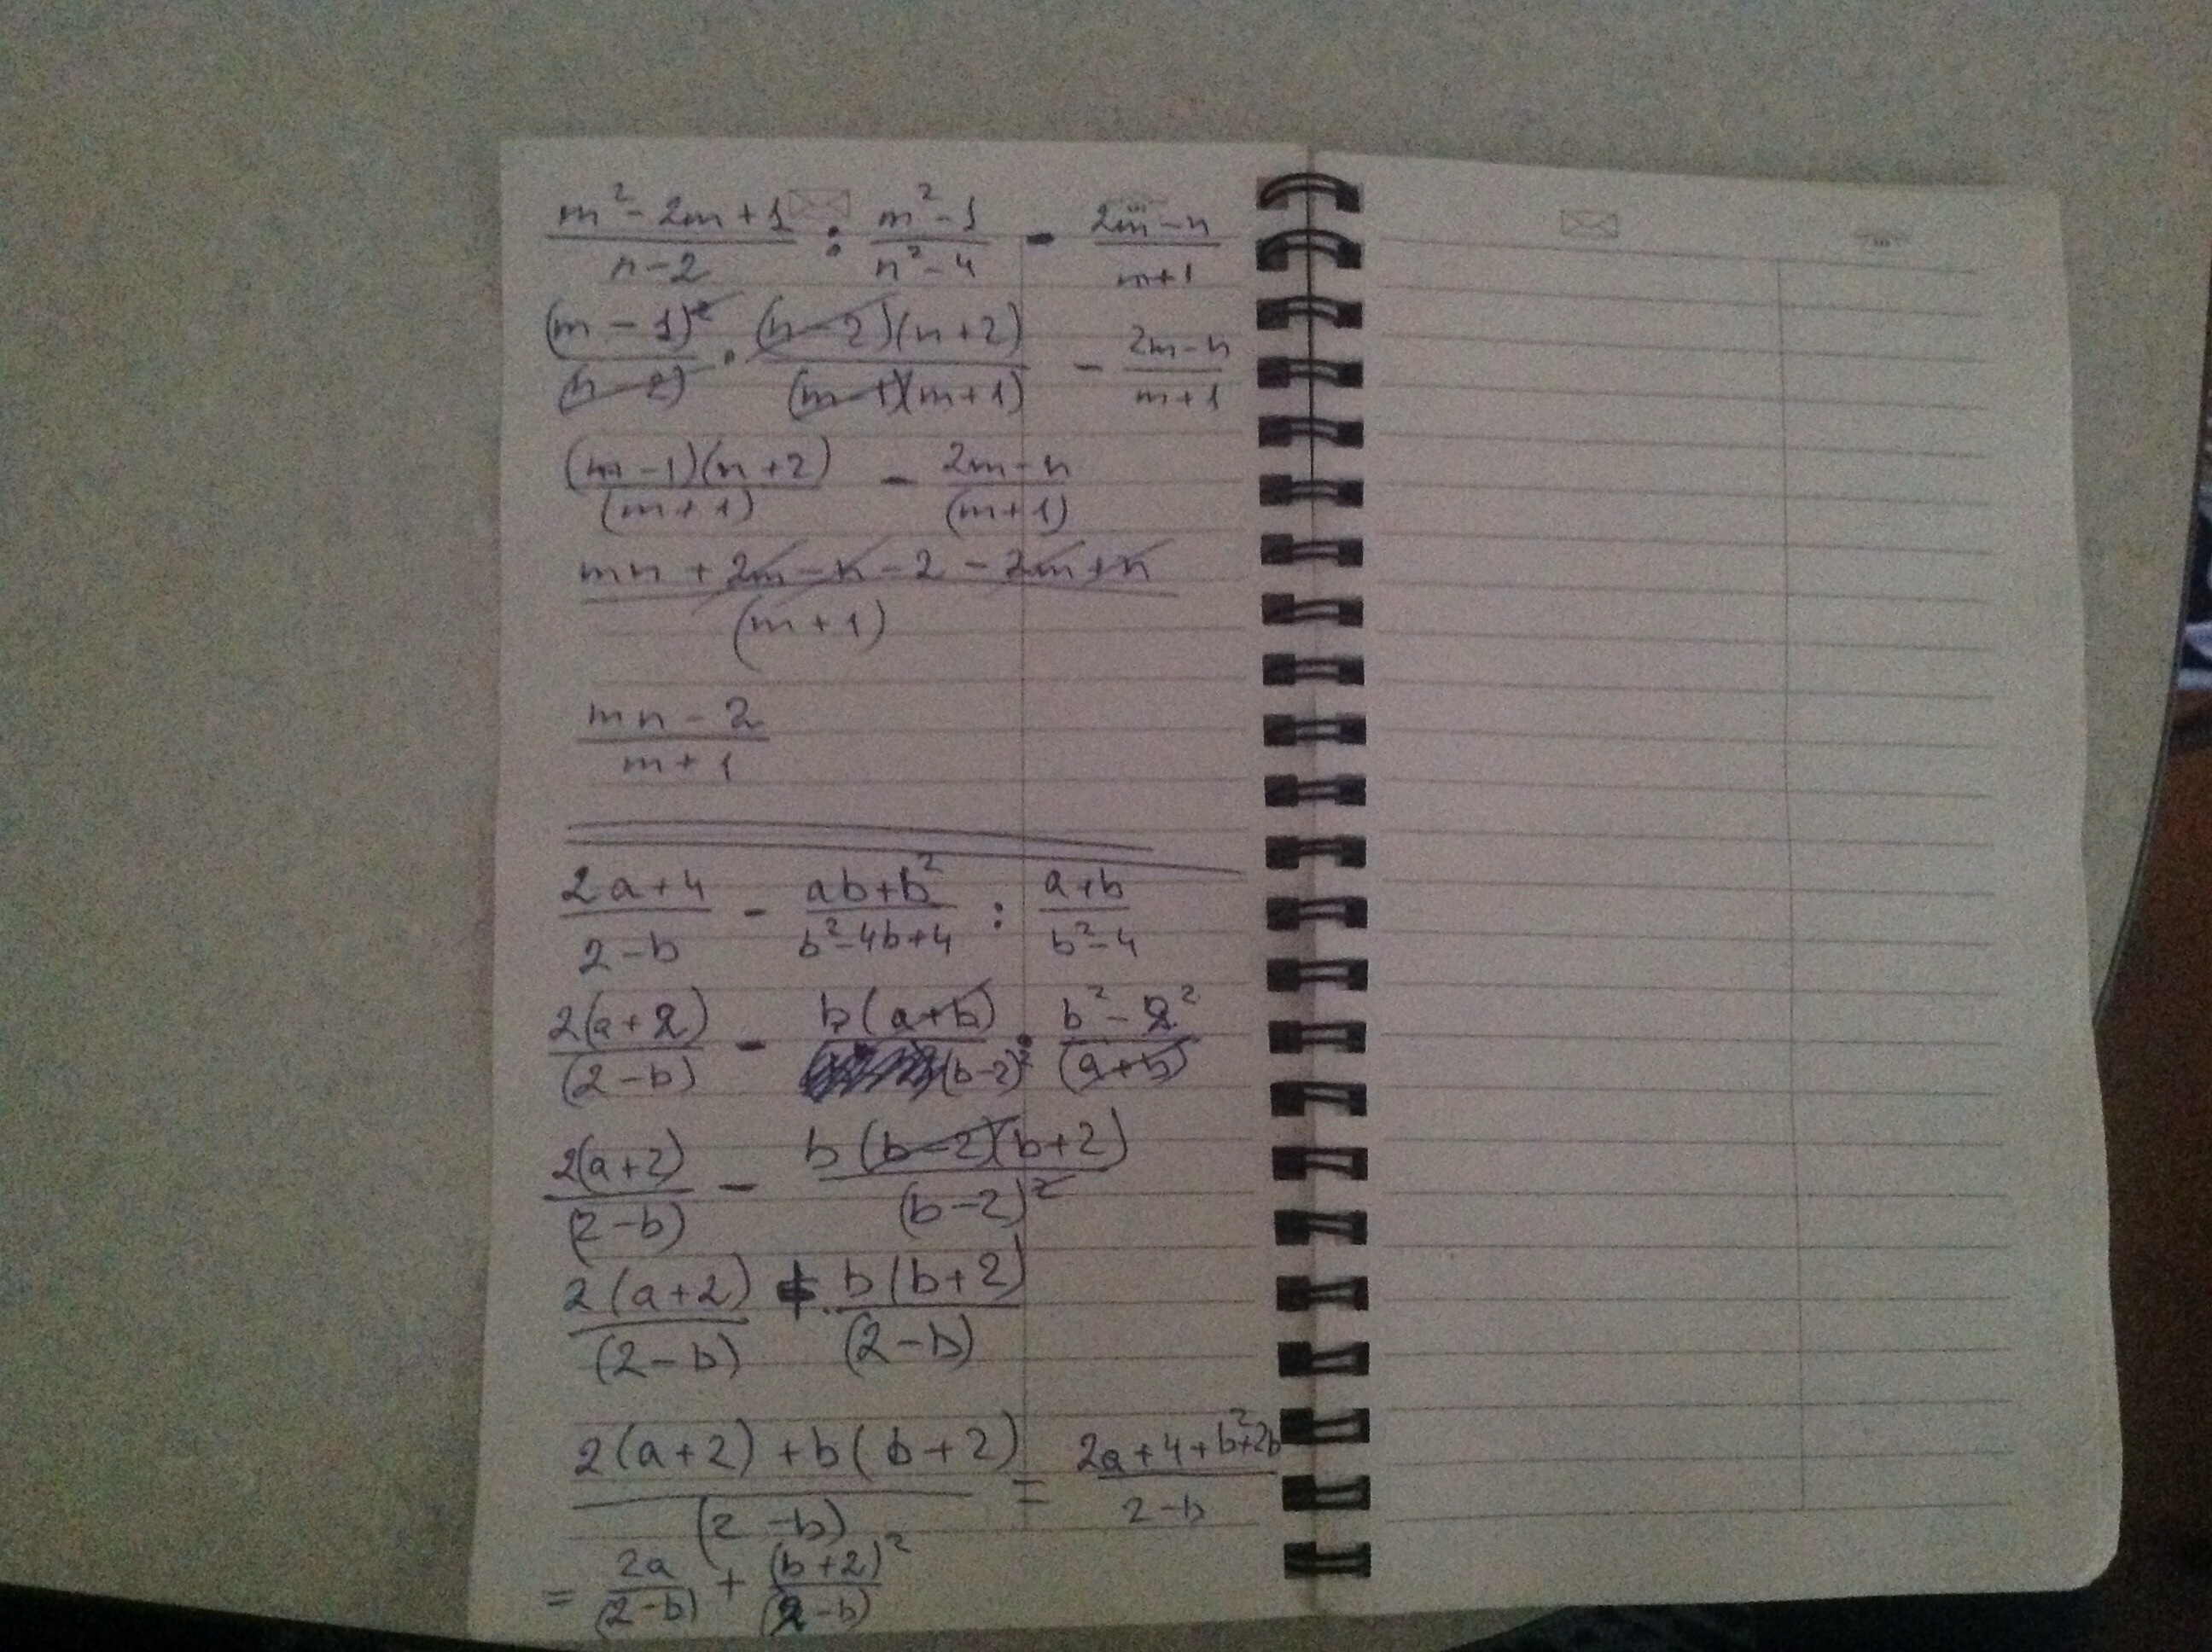 (m² - 2m + 1)/(n - 2) : (m² - 1)/(n² - 4) - (2m - n)/(m + 1)
(m - 1)²/(n - 2) · (n - 2)(n + 2)/(m - 1)(m + 1) - (2m - n)/(m + 1)
(m - 1)(n + 2)/(m + 1) - (2m - n)/(m + 1)
(mn + 2m - n - 2 - 2m + n)/(m + 1)
(mn - 2)/(m + 1)
(2a + 4)/(2 - b) - (ab + b²)/(b² - 4b + 4) : (a + b)/(b² - 4)
2(a + 2)/(2 - b) - b(a + b)/(b - 2)² · (b² - 2²)/(a + b)
2(a + 2)/(2 - b) - b(b - 2)(b + 2)/(b - 2)²
2(a + 2)/(2 - b) + b(b + 2)/(2 - b)
(2(a + 2) + b(b + 2))/(2 - b) = (2a + 4 + b² + 2b)/(2 - b)
= 2a/(2 - b) + (b + 2)²/(2 - b)